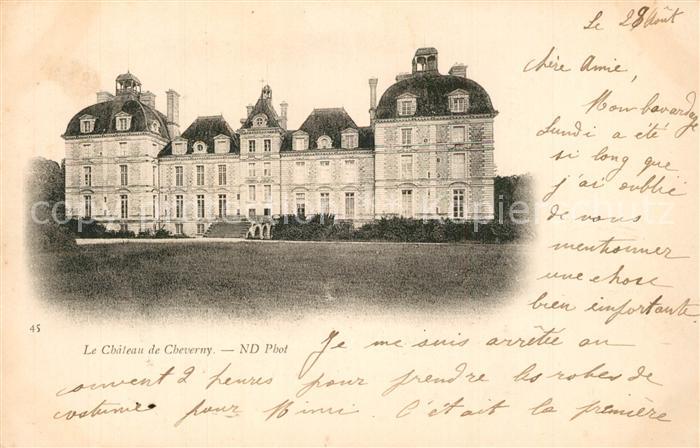 Le 28 Août
Chère Amie,
Mon bavardage
Lundi a été
si long que
j'ai oublié
de vous
mentionner
une chose
bien importante
45
Le Château de Cheverny. — ND Phot
Je me suis arrêtée au
couvent 2 heures pour prendre les robes de
costume pour Mimi. C'était la première